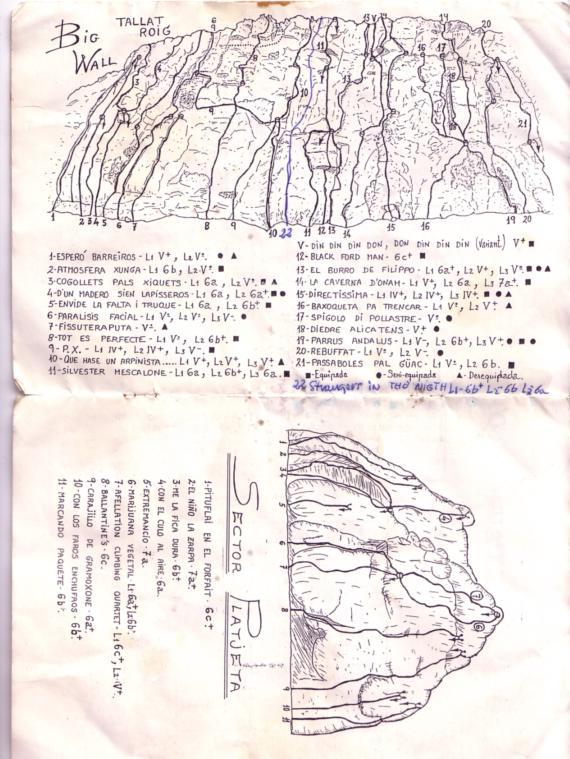 BIG WALL
TALLAT ROIG
1-ESPERÓ BARREIROS - L1 V+, L2 Vº. ● ▲
2-ATMOSFERA XUNGA - L1 6b, L2-Vº. ■
3-COGOLLETS PALS XIQUETS - L1 6a, L2 Vº. ■ ▲
4-D'UN MADERO SIEN LAPISSEROS - L1 6a, L2 6a+. ■ ●
5-ENVIDE LA FALTA I TRUQUE - L1 6a, L2 6b+ ■
6-PARALISIS FACIAL - L1 Vº, L2 Vº, L3 V-. ●
7-FISSUTERAPUTA - Vº. ▲
8-TOT ES PERFECTE - L1 Vº, L2 6b+. ■
9-P.X. - L1 IV+, L2 IV+, L3 V-. ■
10-QUE HASE UN ARPINISTA..... L1 V+, L2 V+, L3 V+ ▲
11-SILVESTER MESCALONE - L1 6a, L2 6b+, L3 6a. ■
V- DIN DIN DIN DON, DON DIN DIN DIN (Variant) V+ ■
12- BLACK FORD MAN - 6c+ ■
13- EL BURRO DE FILIPPO - L1 6a+, L2 V+, L3 Vº. ■ ● ▲
14- LA CAVERNA D'ONAM - L1 V+, L2 6a, L3 7a+. ■
15- DIRECTÍSSIMA - L1 IV+, L2 IV+, L3 IV+. ■ ● ▲
16- BAXOQUETA PA TRENCAR - L1 Vº, L2 V+ ▲
17- SPIGOLO DI POLLASTRE - Vº. ●
18- DIEDRE ALICATENS - V+ ●
19- PARRUS ANDALUS - L1 V-, L2 6b+, L3 V+. ● ■ ●
20- REBUFFAT - L1 Vº, L2 V-. ●
21- PASSABOLES PAL GÜAC - L1 Vº, L2 6b. ■
■-Equipada ●-Semi-equipada ▲-Desequipada.
22 Strangers in THE NIGTH L1-6b+ L2 6b L3 6a
SECTOR PLATJETA
1-PITUFLAI EN EL FORFAIT - 6c+
2-EL NIÑO LA ZARPA - 7a+
3-ME LA PICA DURA - 6b+
4-CON EL CULO AL AIRE - 6a.
5-EXTREMANCIO - 7a.
6-MARIJUANA VEGETAL - L1 6a+, L2 6b+.
7-AFELLATION CLIMBING QUARTET - L1 6c+, L2-IV+.
8-BALLANTINE'S - 6c.
9-CARAJILLO DE GRAMOXONE - 6a+.
10-CON LOS FAROS ENCHUFAOS - 6b+.
11-MARCANDO PAQUETE - 6b+.